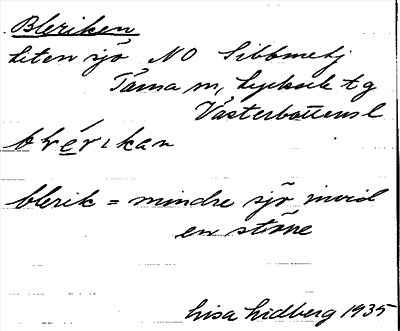 Bleriken
liten sjö NO Gibbmetj
Tärna sn, Lycksele tg
Västerbottens l
blérikan
blerik = mindre sjö invid
en större
Lisa Lidberg 1935